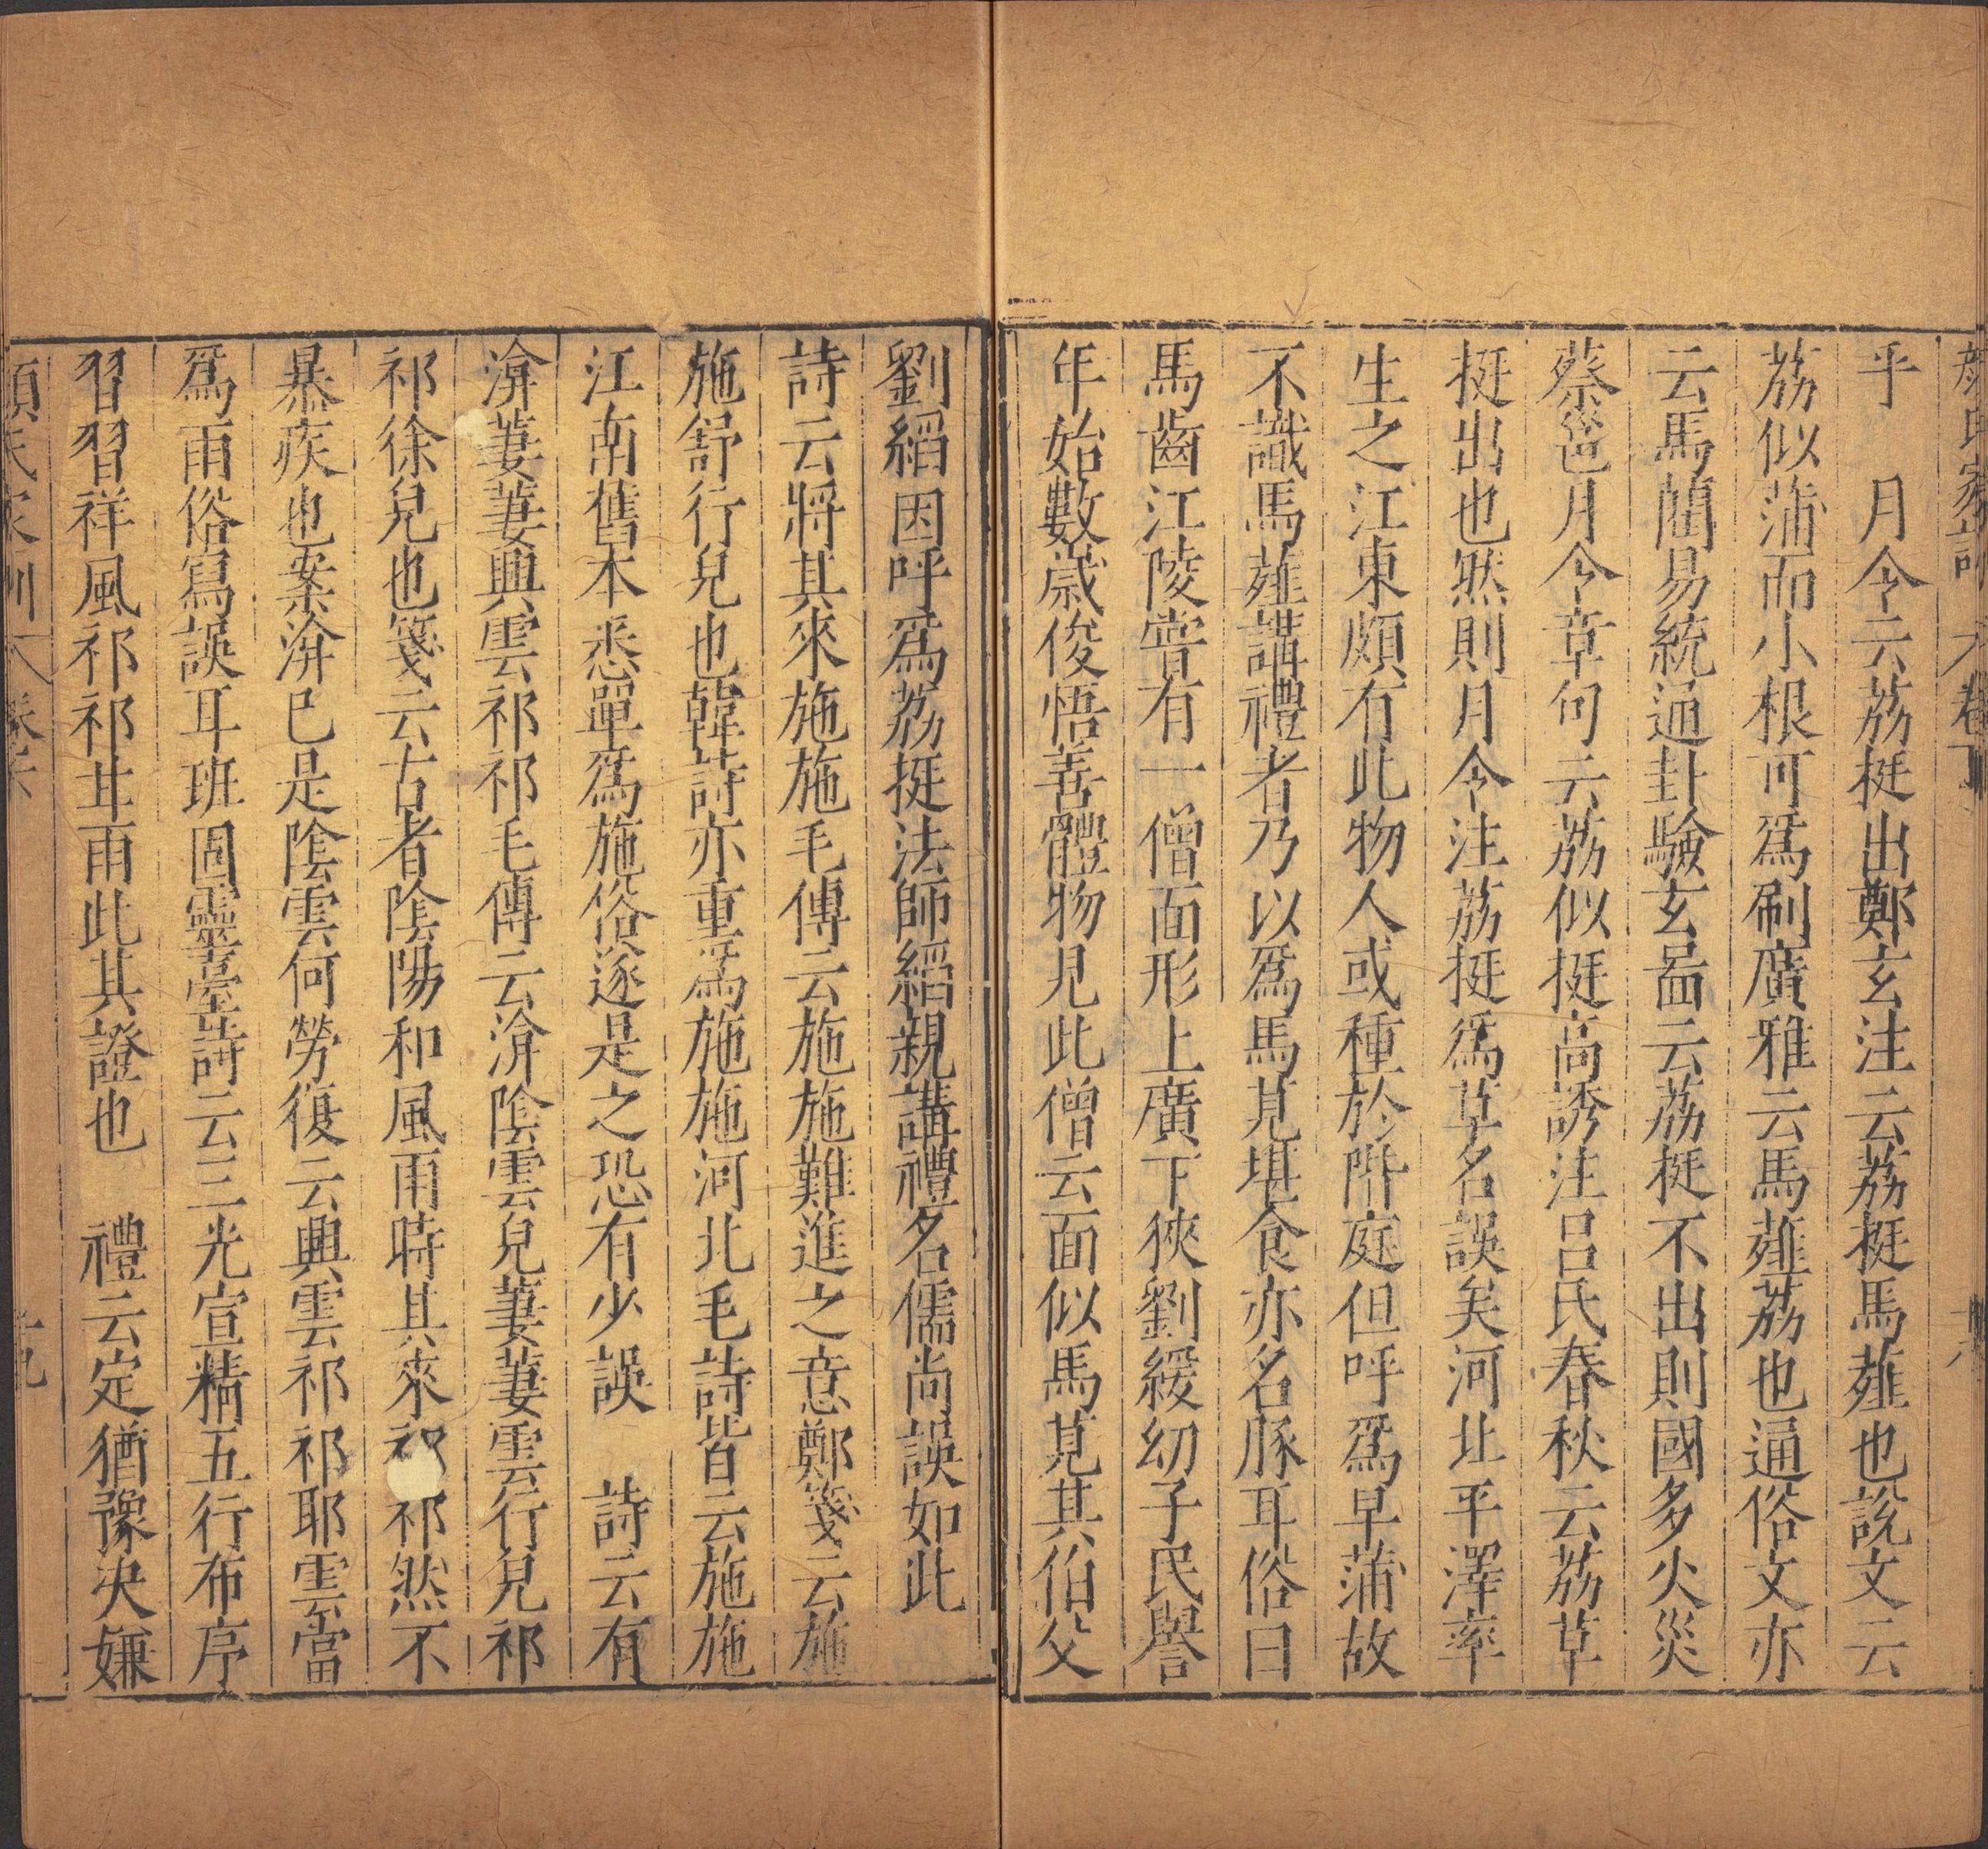 顏氏家訓 卷下 十八
乎　月令云荔挺出鄭玄注云荔挺馬薤也說文云
荔似蒲而小根可爲刷廣雅云馬薤荔也通俗文亦
云馬藺易統通卦驗玄啚云荔挺不出則國多火災
蔡邕月令章句云荔似挺高誘注呂氏春秋云荔草
挺出也然則月令注荔挺爲草名誤矣河北平澤率
生之江東頗有此物人或種於階庭但呼爲早蒲故
不識馬薤講禮者乃以爲馬莧堪食亦名豚耳俗曰
馬齒江陵嘗有一僧面形上廣下狹劉緩幼子民譽
年始數歲俊悟善體物見此僧云面似馬莧其伯父
劉縚因呼爲荔挺法師縚親講禮名儒尚誤如此
詩云將其來施施毛傳云施施難進之意鄭箋云施
施舒行皃也韓詩亦重爲施施河北毛詩皆云施施
江南舊本悉單爲施俗遂是之恐有少誤　詩云有
渰萋萋興雲祁祁毛傳云渰陰雲皃萋萋雲行皃祁
祁徐皃也箋云古者陰陽和風雨時其來祁祁然不
暴疾也案渰已是陰雲何勞復云興雲祁祁耶雲當
爲雨俗寫誤耳班固靈臺詩云三光宣精五行布序
習習祥風祁祁甘雨此其證也　禮云定猶豫決嫌